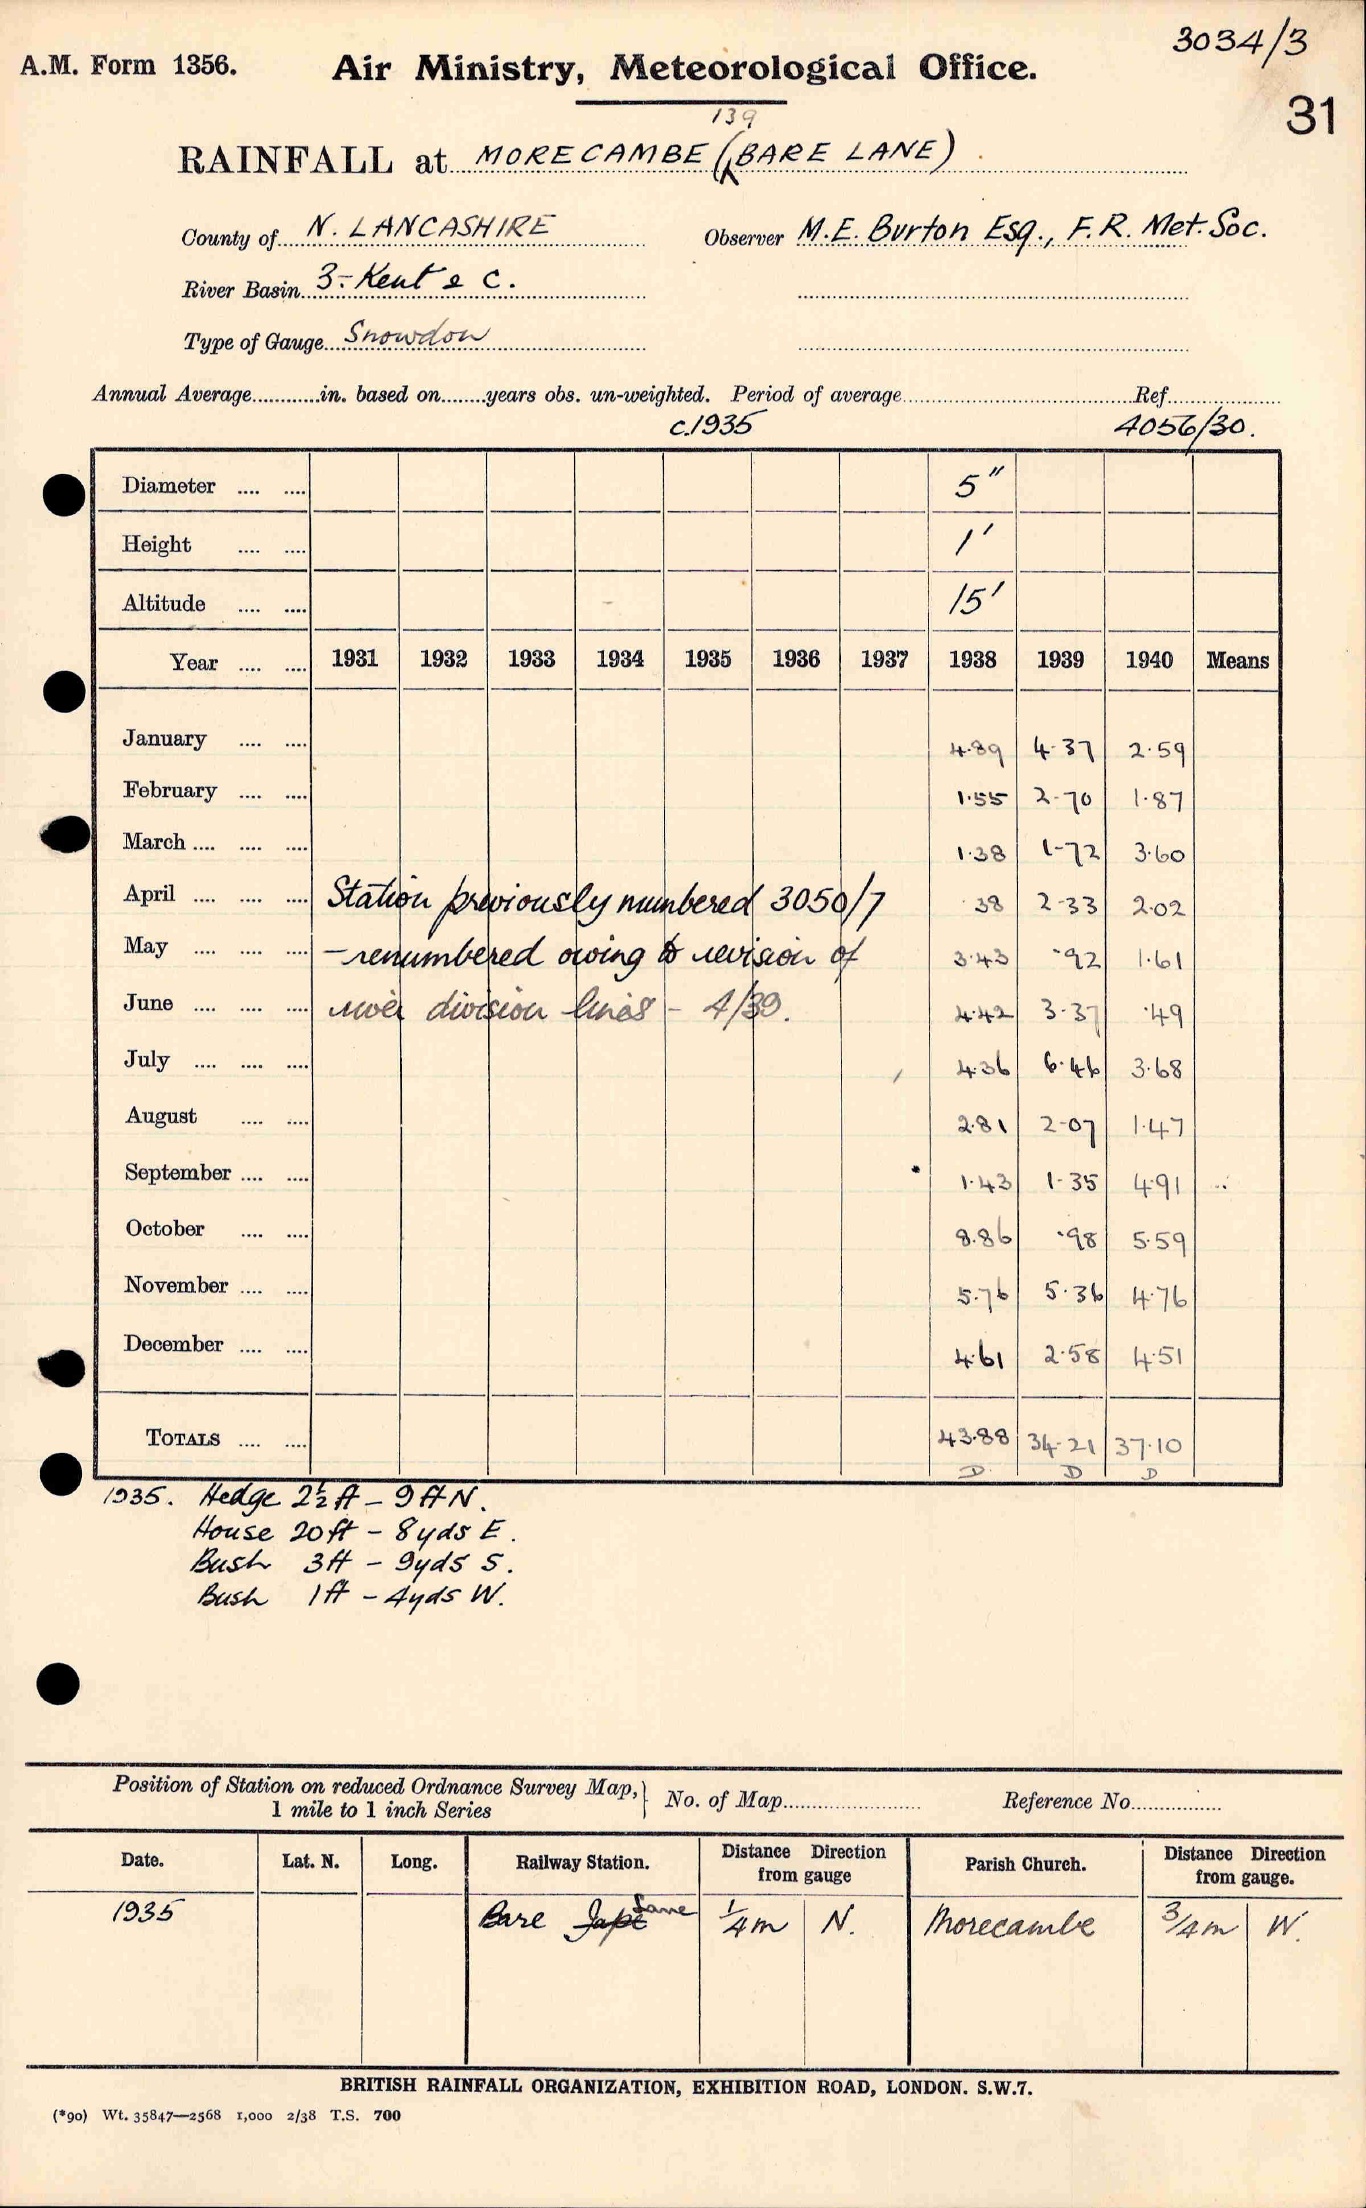 3034/3
A.M. Form 1356. Air Ministry, Meteorological Office.
31
139
RAINFALL at MORECAMBE (BARE LANE)
County of N. LANCASHIRE Observer M.E. Burton Esq., F.R. Met. Soc.
River Basin 3.-Kent & C.
Type of Gauge Snowdon
Annual Average............in. based on........years obs. un-weighted. Period of average.................... Ref....................
c.1935 4056/30.
Diameter .... .... 5"
Height .... .... 1'
Altitude .... .... 15'
Year .... .... 1931 1932 1933 1934 1935 1936 1937 1938 1939 1940 Means
January .... .... 4.89 4.37 2.59
February .... .... 1.55 2.70 1.87
March .... .... .... 1.38 1.72 3.60
April .... .... .... Station previously numbered 3050/7 .38 2.33 2.02
May .... .... .... - renumbered owing to revision of 3.43 .92 1.61
June .... .... .... river division lines - 4/39. 4.42 3.37 .49
July .... .... .... 4.36 6.46 3.68
August .... .... 2.81 2.07 1.47
September .... .... 1.43 1.35 4.91
October .... .... 8.86 .98 5.59
November .... .... 5.76 5.36 4.76
December .... .... 4.61 2.58 4.51
TOTALS .... .... 43.88 34.21 37.10
D D D
1935. Hedge 2½ ft - 9 ft N.
House 20 ft - 8 yds E.
Bush 3 ft - 9 yds S.
Bush 1 ft - 4 yds W.
Position of Station on reduced Ordnance Survey Map, } No. of Map.................... Reference No................
1 mile to 1 inch Series
Date. Lat. N. Long. Railway Station. Distance Direction from gauge Parish Church. Distance Direction from gauge.
1935 Bare Lane 1/4 m N. Morecambe 3/4 m W.
BRITISH RAINFALL ORGANIZATION, EXHIBITION ROAD, LONDON. S.W.7.
(*90) Wt. 35847—2568 1,000 2/38 T.S. 700